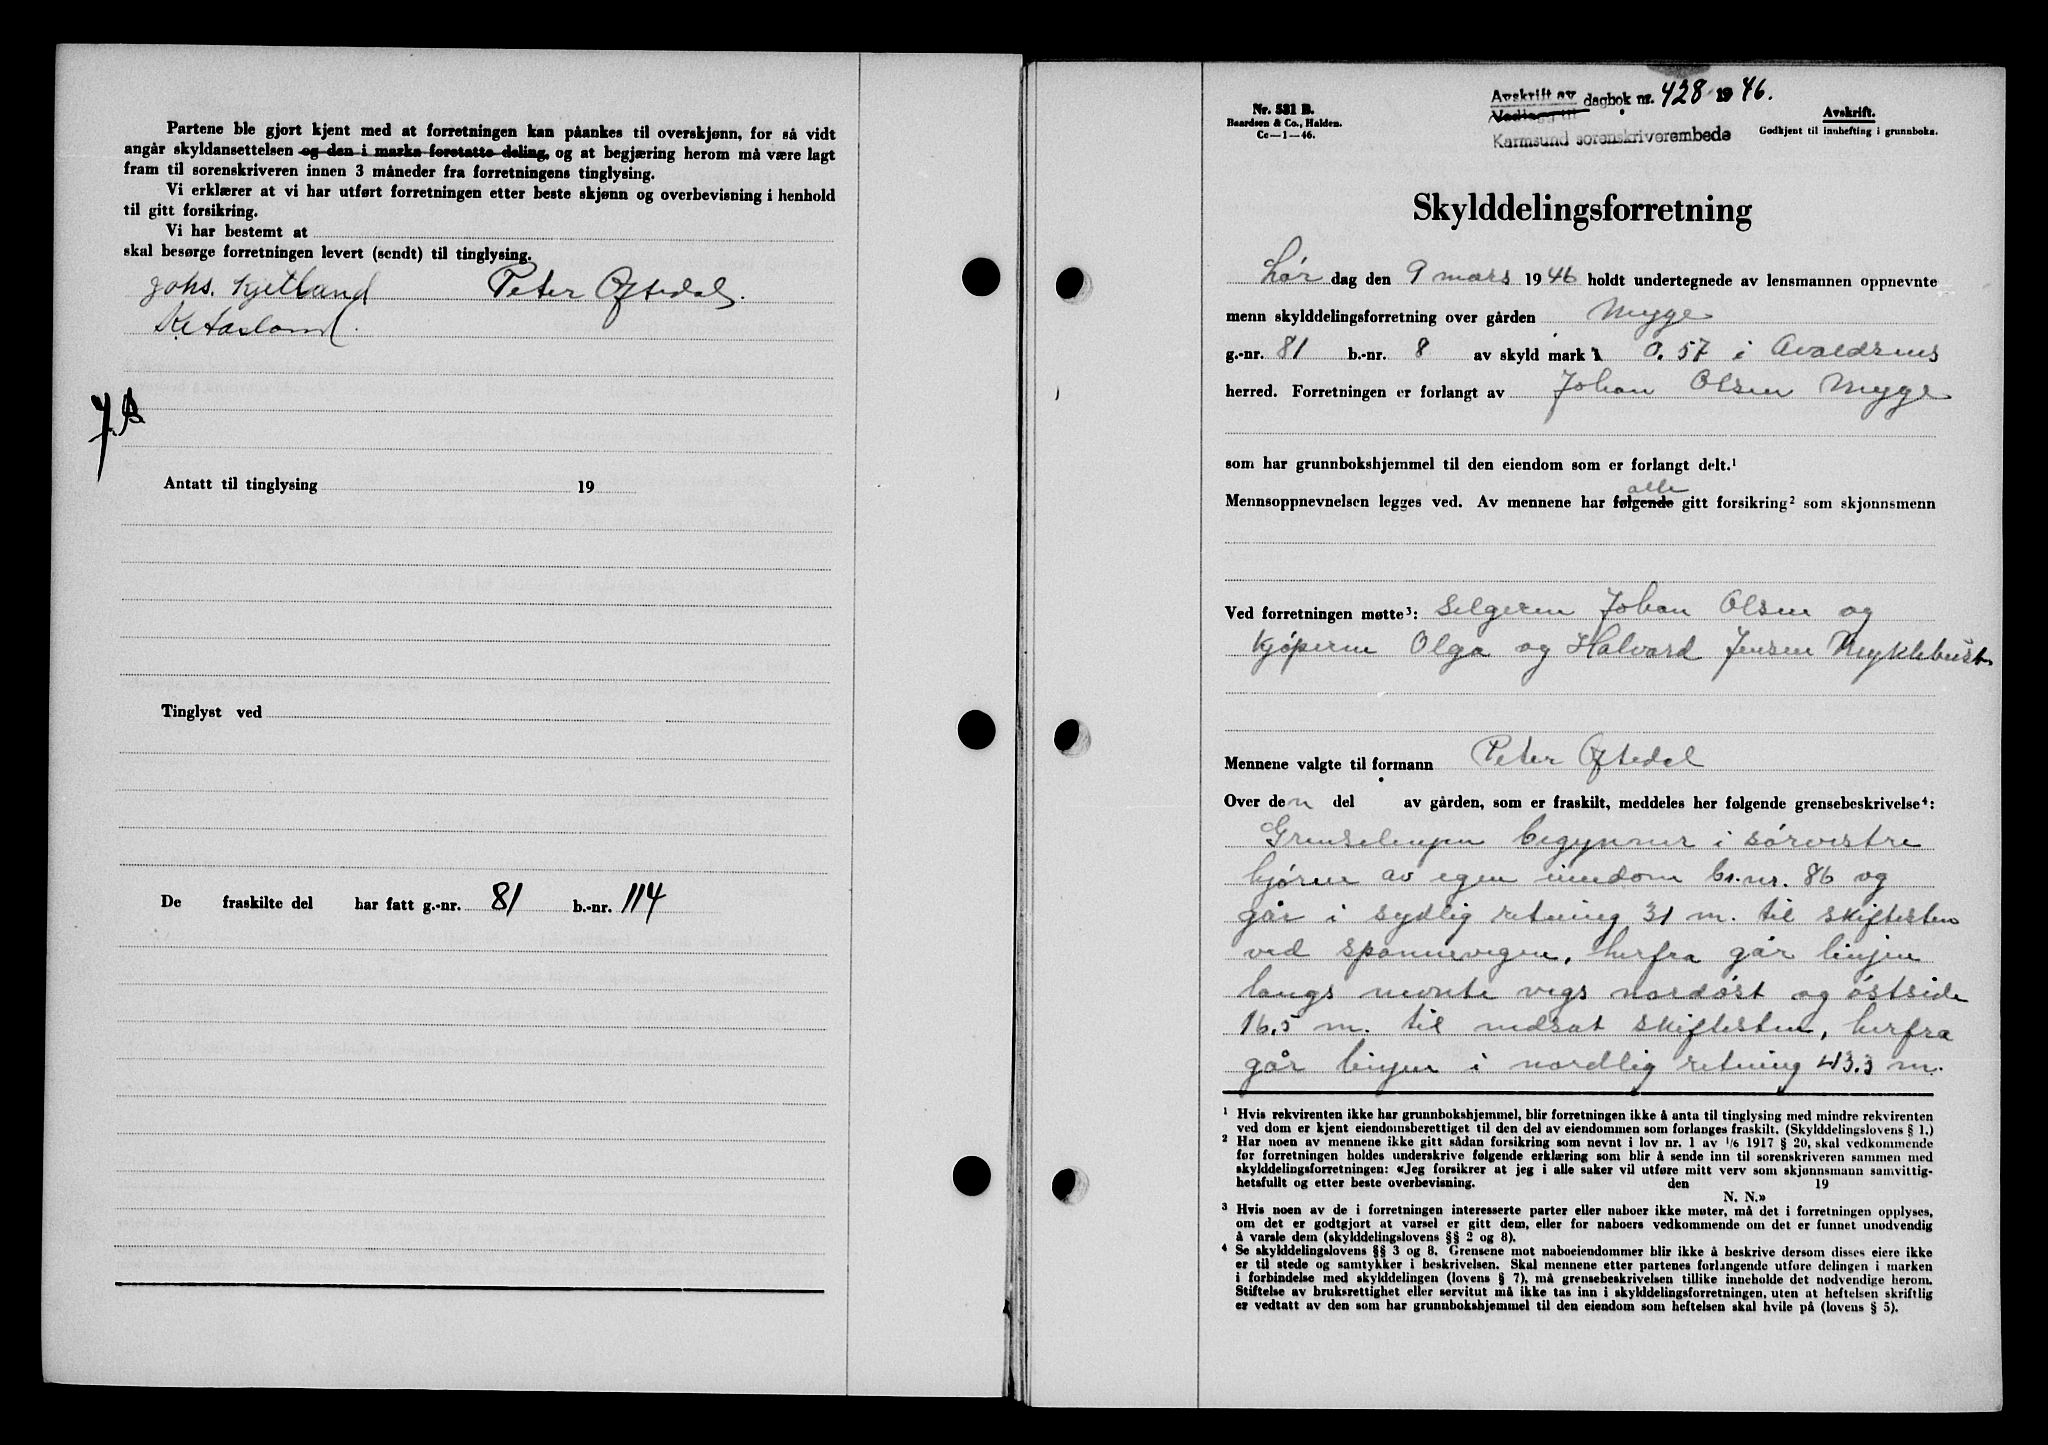 Partene ble gjort kjent med at forretningen kan påankes til overskjønn, for så vidt
angår skyldansettelsen og den i marka foretatte deling, og at begjæring herom må være lagt
fram til sorenskriveren innen 3 måneder fra forretningens tinglysing.
Vi erklærer at vi har utført forretningen etter beste skjønn og overbevisning i henhold
til gitt forsikring.
Vi har bestemt at
skal besørge forretningen levert (sendt) til tinglysing.
Johs. Kjetland Peter Oftedal.
K. Aasland.
Antatt til tinglysing 19
Tinglyst ved
De fraskilte del har fatt g.-nr. 81 b.-nr. 114
Nr. 531 B.
Baardsen & Co., Halden.
Cc—1—46.
Avskrift av
Vedlegg til
dagbok nr. 428 1946.
Karmsund sorenskriverembede
Avskrift.
Godkjent til innhefting i grunnboka.
Skylddelingsforretning
Lør dag den 9 mars 1946 holdt undertegnede av lensmannen oppnevnte
menn skylddelingsforretning over gården Myge
g.-nr. 81 b.-nr. 8 av skyld mark 0.57 i Avaldsnes
herred. Forretningen er forlangt av Johan Olsen Myge
som har grunnbokshjemmel til den eiendom som er forlangt delt.¹
alle
Mennsoppnevnelsen legges ved. Av mennene har følgende gitt forsikring² som skjønnsmenn
Ved forretningen møtte³: Selgeren Johan Olsen og
kjøperne Olga og Halvard Jensen Myklebust
Mennene valgte til formann Peter Oftedal
Over den del av gården, som er fraskilt, meddeles her følgende grensebeskrivelse⁴:
Grenselinjen begynner i sørvestre
hjørne av egen eiendom br.nr. 86 og
går i sydlig retning 31 m. til skiftesten
ved spannevegen, herfra går linjen
langs nevnte vegs nordøst og østside
16.5 m. til nedsat skiftesten, herfra
går linjen i nordlig retning 43.3 m.
¹ Hvis rekvirenten ikke har grunnbokshjemmel, blir forretningen ikke å anta til tinglysing med mindre rekvirenten
ved dom er kjent eiendomsberettiget til den del av eiendommen som forlanges fraskilt. (Skylddelingslovens § 1.)
² Har noen av mennene ikke gitt sådan forsikring som nevnt i lov nr. 1 av 1/6 1917 § 20, skal vedkommende
før forretningen holdes underskrive følgende erklæring som blir å sende inn til sorenskriveren sammen med
skylddelingsforretningen: «Jeg forsikrer at jeg i alle saker vil utføre mitt verv som skjønnsmann samvittig-
hetsfullt og etter beste overbevisning. den 19
N. N.»
³ Hvis noen av de i forretningen interesserte parter eller naboer ikke møter, må det i forretningen opplyses,
om det er godtgjort at varsel er gitt dem, eller for naboers vedkommende om det er funnet unødvendig
å varsle dem (skylddelingslovens §§ 2 og 8).
⁴ Se skylddelingslovens §§ 3 og 8. Grensene mot naboeiendommer blir ikke å beskrive dersom disses eiere ikke
er til stede og samtykker i beskrivelsen. Skal mennene etter partenes forlangende utføre delingen i marken
i forbindelse med skylddelingen (lovens § 7), må grensebeskrivelsen tillike inneholde det nødvendige herom.
Stiftelse av bruksrettighet eller servitut må ikke tas inn i skylddelingsforretningen, uten at heftelsen skriftlig
er vedtatt av den som har grunnbokshjemmel til den eiendom som heftelsen skal hvile på (lovens § 5).